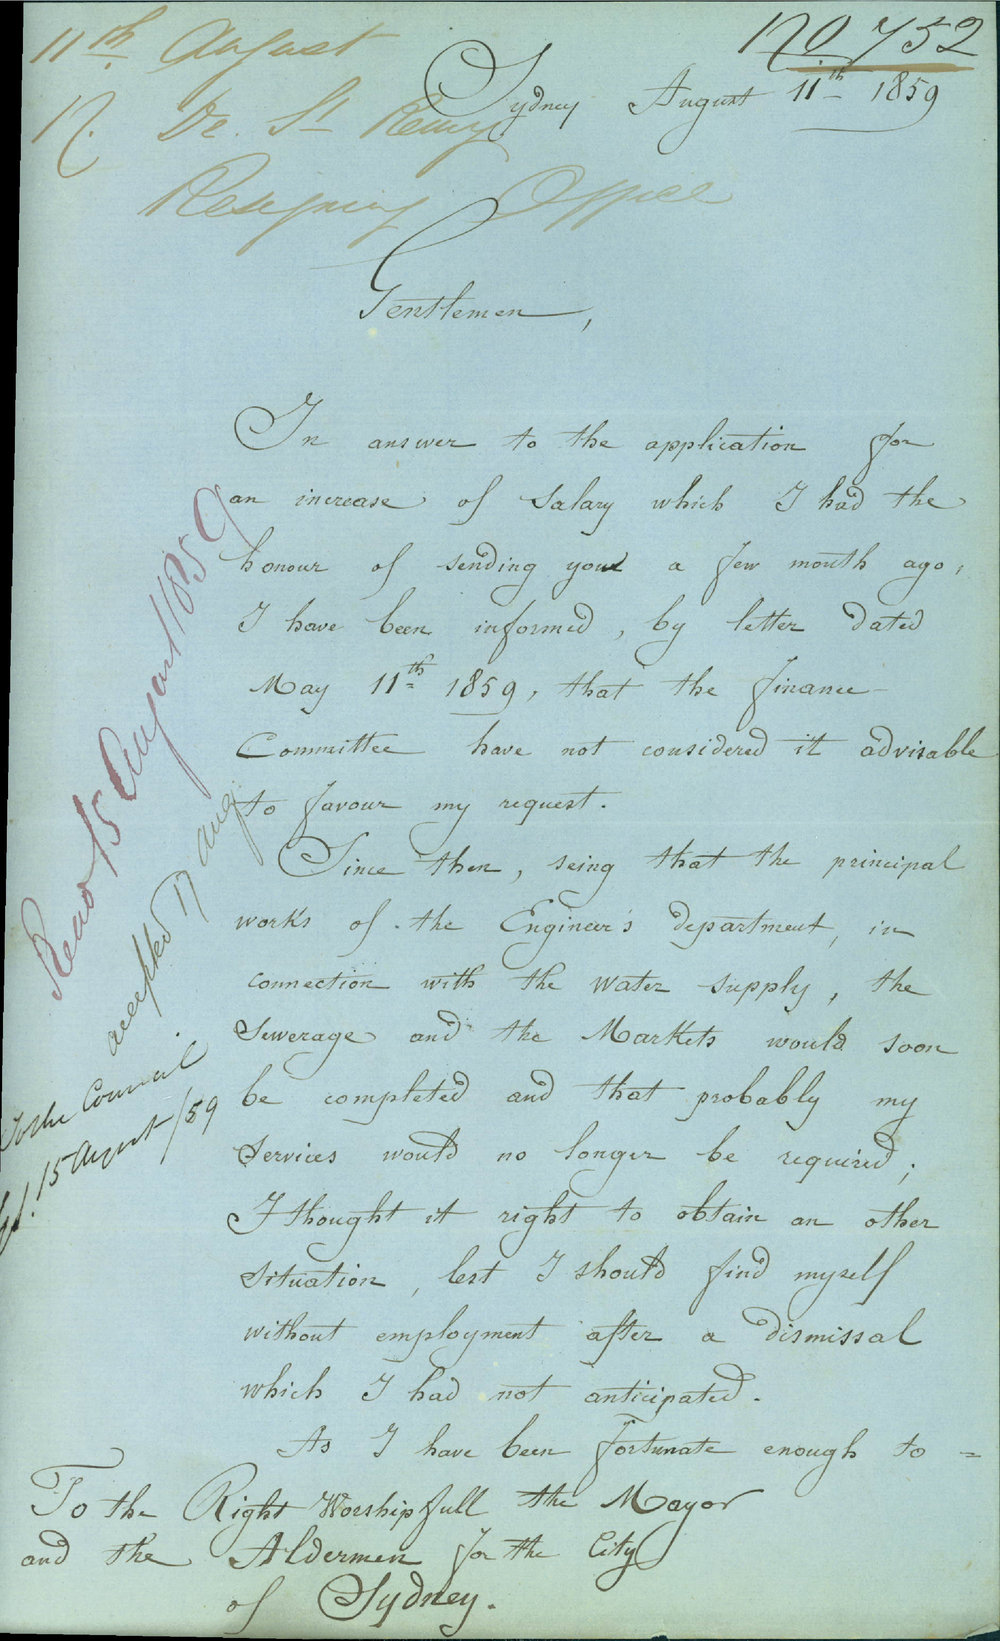 11th August
No 752
Sydney August 11th 1859
N. De St Remy
Resigning Office
Gentlemen,
In answer to the application for
an increase of Salary which I had the
honour of sending you a few month ago,
I have been informed, by letter dated
May 11th 1859, that the finance
Committee have not considered it advisable
to favour my request.
Since then, seing that the principal
works of the Engineer's department, in
connection with the water supply, the
Sewerage and the Markets would soon
be completed and that probably my
Services would no longer be required;
I thought it right to obtain an other
Situation, lest I should find myself
without employment after a dismissal
which I had not anticipated.
As I have been fortunate enough to =
To the Right Worshipfull the Mayor
and the Aldermen for the City
of Sydney.
Read 15 August 1859
accepted 17 aug
To the Council
15 August /59